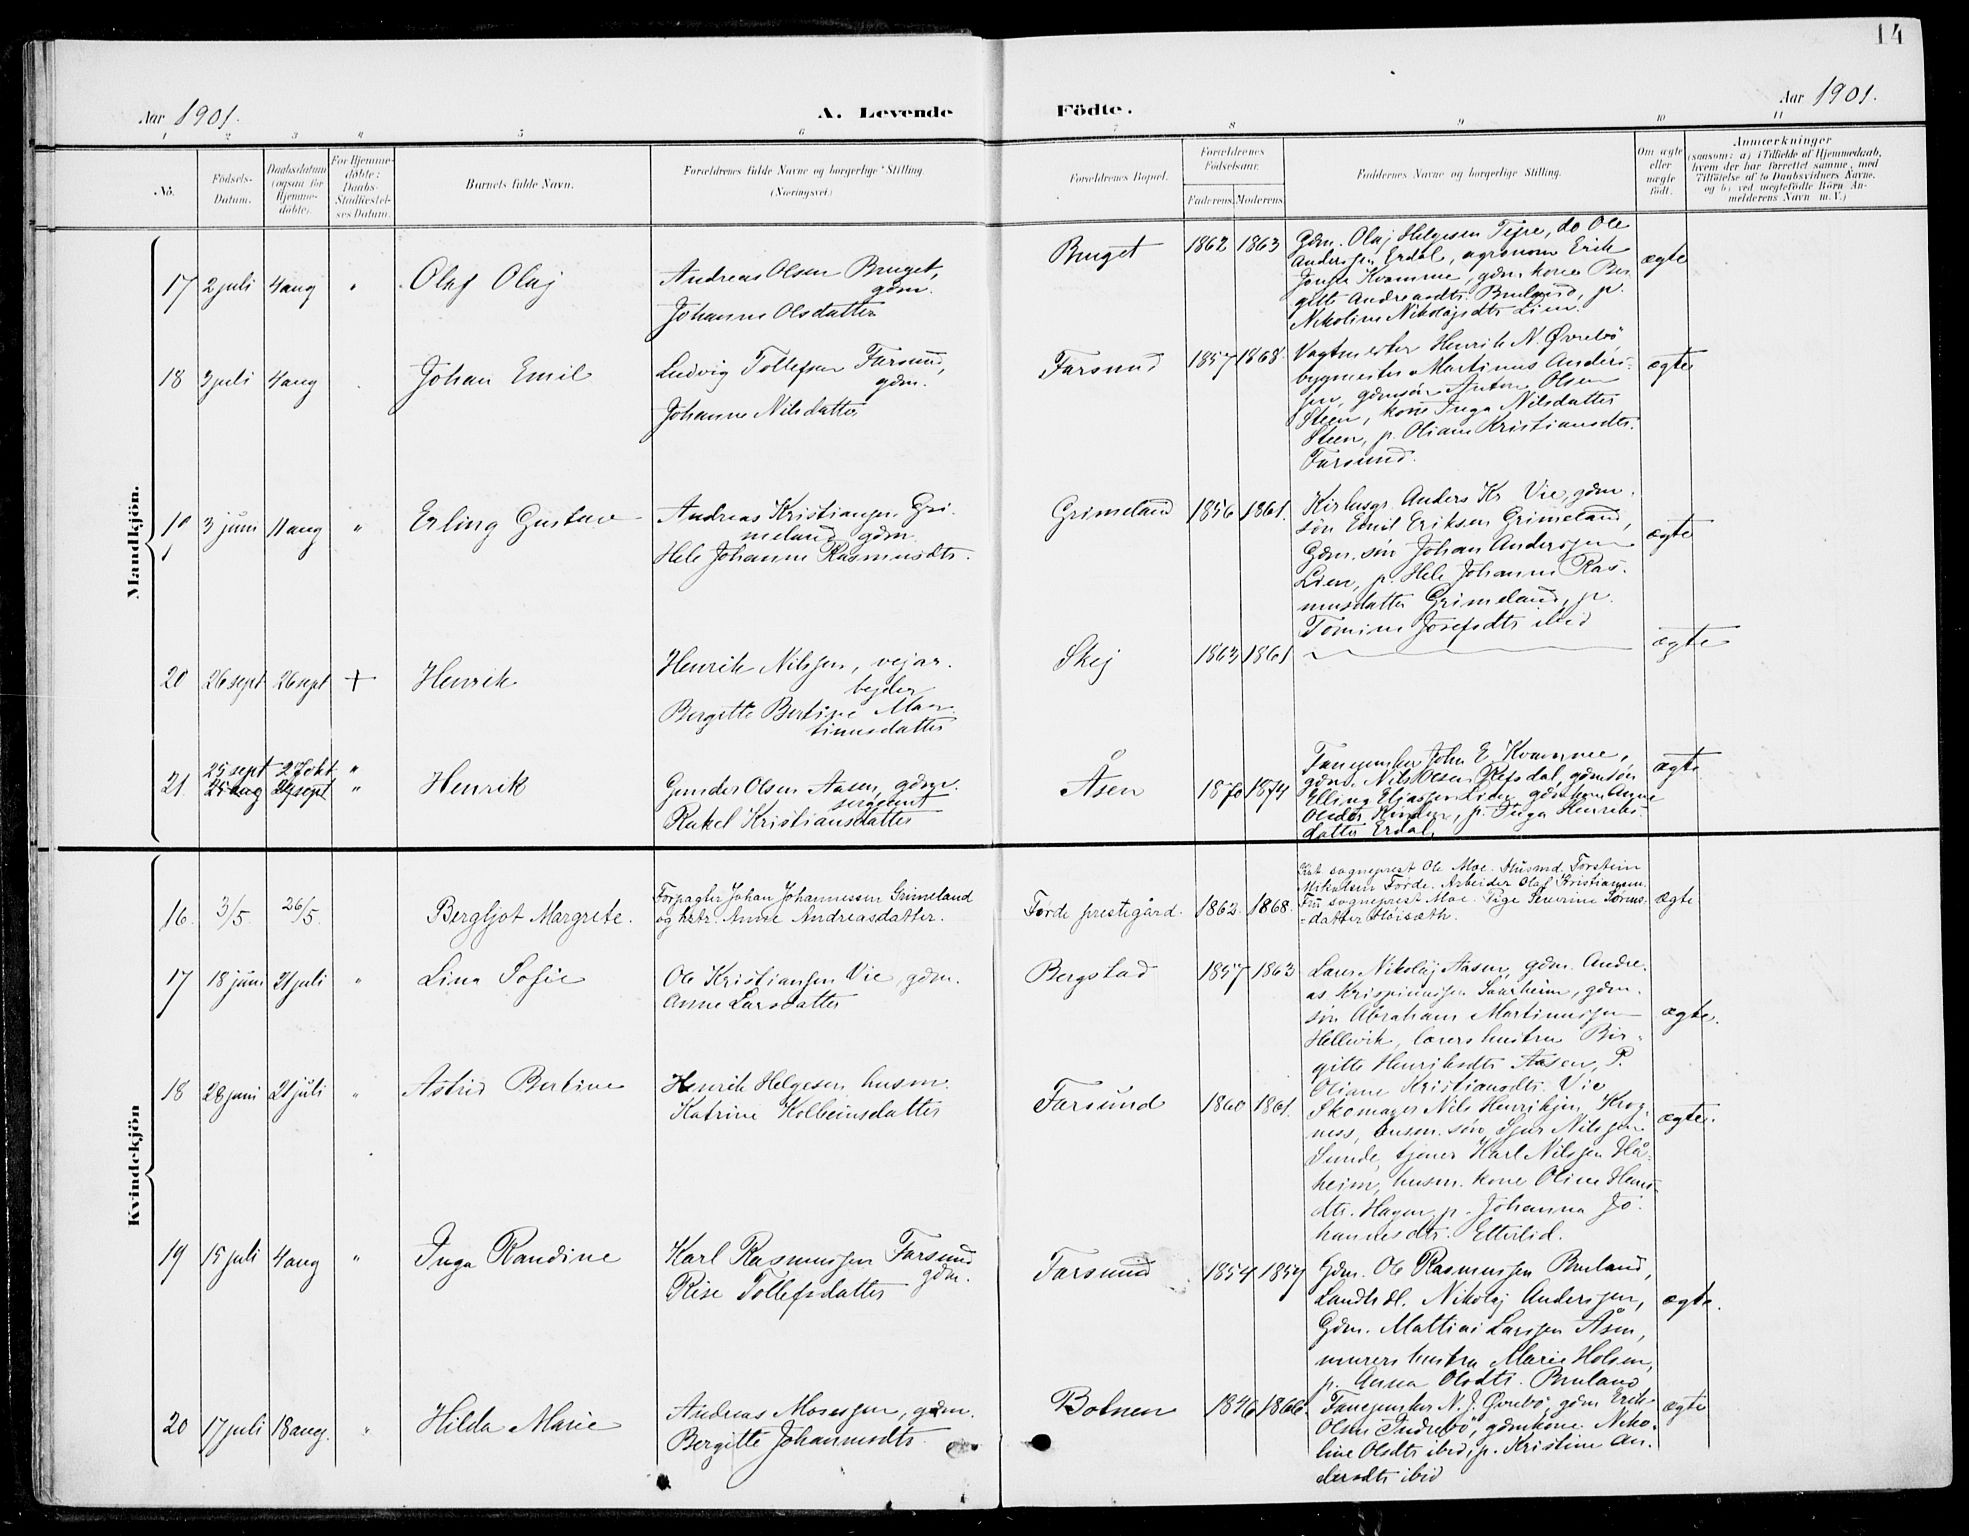 14
Aar 1901.
A. Levende
Födte.
Aar 1901.
1 2 3 4 5 6 7 8 9 10 11
No.
Födsels-
Datum.
Daabsdatum
(ogsaa for
Hjemme-
döbte).
For Hjemme-
döbte:
Daabs-
Stadfæstel-
ses Datum.
Barnets fulde Navn.
Forældrenes fulde Navne og borgerlige Stilling.
(Næringsvei.)
Forældrenes Bopæl.
Forældrenes
Födselsaar.
Faderens. Moderens
Faddernes Navne og borgerlige Stilling.
Om ægte
eller
uægte
födt.
Anmærkninger
(saasom: a) i Tilfælde af Hjemmedaab,
hvem der har forrettet samme, med
Tilföielse af to Daabsvidners Navne,
og b) ved uægtefödte Börn An-
melderens Navn m. V.)
Mandkjön.
17 2 juli 4 aug " Olaf Olaj
Andreas Olsen Bruget,
gdm.
Johanne Olsdatter
Bruget 1862 1863
Gdm. Olaj Helgesen Tefre, do Ole
Andersen Erdal, agronom Erik
Jonsen Kvamme, gdm. kone Ber
gitte Andreasdtr. Bruland, p.
Nikoline Nikolajsdtr Lien.
ægte
18 3 juli 4 aug Johan Emil
Ludvig Tollefsen Farsund,
gdm.
Johanne Nilsdatter
Farsund 1857 1868
Vagtmester Henrik N. Øvrebö,
bygmester Martinus Anders-
sen, gdmsön Anton Olsen
Steen, kone Inga Nilsdatter
Steen, p. Oliane Kristiansdtr.
Farsund.
ægte
19 3 juni 11 aug " Erling Gustav
Andreas Kristiansen Gri-
meland gdm.
Hele Johanne Rasmusdtr.
Grimeland 1856 1861.
Kirkesgr. Anders Kr. Vie, gdm.
sön Emil Eriksen Grimeland,
Gdm. sön Johan Anderssen
Lien, p. Hele Johanne Ras-
musdatter Grimeland, p.
Tomine Josefsdtr ibid
ægte
20 26 sept 26 sept + Henrik
Henrik Nilssen, vejar-
bejder
Bergitte Bertine Mar-
tinusdatter
Skej 1863 1861
ægte
21. 25 sept 27 okt "
25 aug 24 sept " Henrik
Gunder Olsen Aasen, gdm.
sergeant
Rakel Kristiansdatter
Åsen 1870 1874
Fanejunker John E. Kvamme,
gdm. Nils Olsen Refsdal, gdmsön
Elling Eliassen Lien, gdm. kone Anne
Olsdtr Kinden, p. Inga Henriks-
datter Erdal
ægte
Kvindekjön
16. 3/5 26/5. Bergljot Margrete.
Forpagter Johan Johannessen Grimeland
og hstr. Anne Andreasdatter.
Førde prestegård. 1862. 1868.
Kst sogneprest Ole Moe. Husmd. Torstein
Mikalsen Førde. Arbeider Olaf Kristiansen.
Fru sogneprest Moe. Pige Severine Sörens-
-datter Høisæth.
ægte
17 18 juni 21 juli " Lina Sofie
Ole Kristiansen Vie, gdm.
Anne Larsdatter
Bergstad 1857 1863
Lærer Nikolaj Aasen, gdm. Andre-
as Krispinussen Saarheim, gdm.
sön Abraham Martinussen
Hellevik, lærers hustru Bir-
gitte Henriksdtr Aasen, P.
Oliane Kristiansdtr. Vie
ægte.
18 28 juni 21 juli " Astrid Bertine
Henrik Helgesen husm.
Katrine Kolbeinsdatter
Farsund 1860 1861.
Skomager Nils Henriksen Krog-
ness, husm. sön Sjur Nilssen
Sunde, tjener Karl Nilssen Hå-
heim, husm. kone Oline Hans-
dtr. Hagen, p. Johanna Jo-
hannesdtr. Etterlid.
ægte.
19 15 juli 4 aug " Inga Randine
Karl Rasmussen Farsund
gdm.
Rise Tollefsdatter
Farsund 1854 1857
Gdm. Ole Rasmussen Bruland,
Landhdl. Nikolaj Anderssen,
Gdm. Mattias Larssen Åsen,
murers hustru Marie Holsen,
p. Anna Olsdtr. Bruland
ægte.
20 17 juli 18 aug. " Hilda Marie
Andreas Mosessen, gdm.
Bergitte Johannesdtr.
Botnen 1846 1866.
Fanejunker N. J. Øvrebö, gdm Erik
Olsen Indrebö, gdmkone Niko-
line Olsdtr ibid, p. Kristine An-
dersdtr ibid
ægte